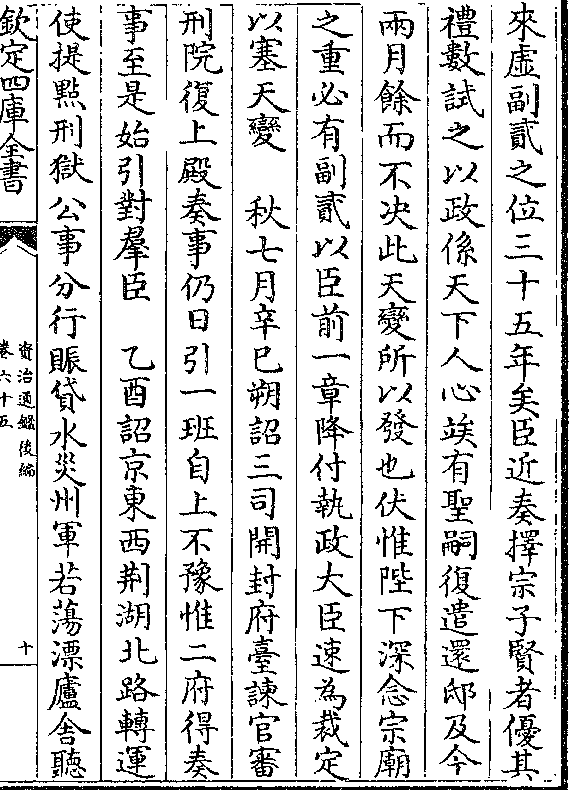 來虛副貳之位三十五年矣臣近奏擇宗子賢者優其
禮數試之以政係天下人心竢有聖嗣復遣還邸及今
兩月餘而不決此天變所以發也伏惟陛下深念宗廟
之重必有副貳以臣前一章降付執政大臣速為裁定
以塞天變　秋七月辛巳朔詔三司開封府臺諫官審
刑院復上殿奏事仍日引一班自上不豫惟二府得奏
事至是始引對羣臣　乙酉詔京東西荆湖北路轉運
使提點刑獄公事分行賑貸水災州軍若蕩漂廬舍聽
欽定四庫全書
資治通鑑後編
卷六十五
十